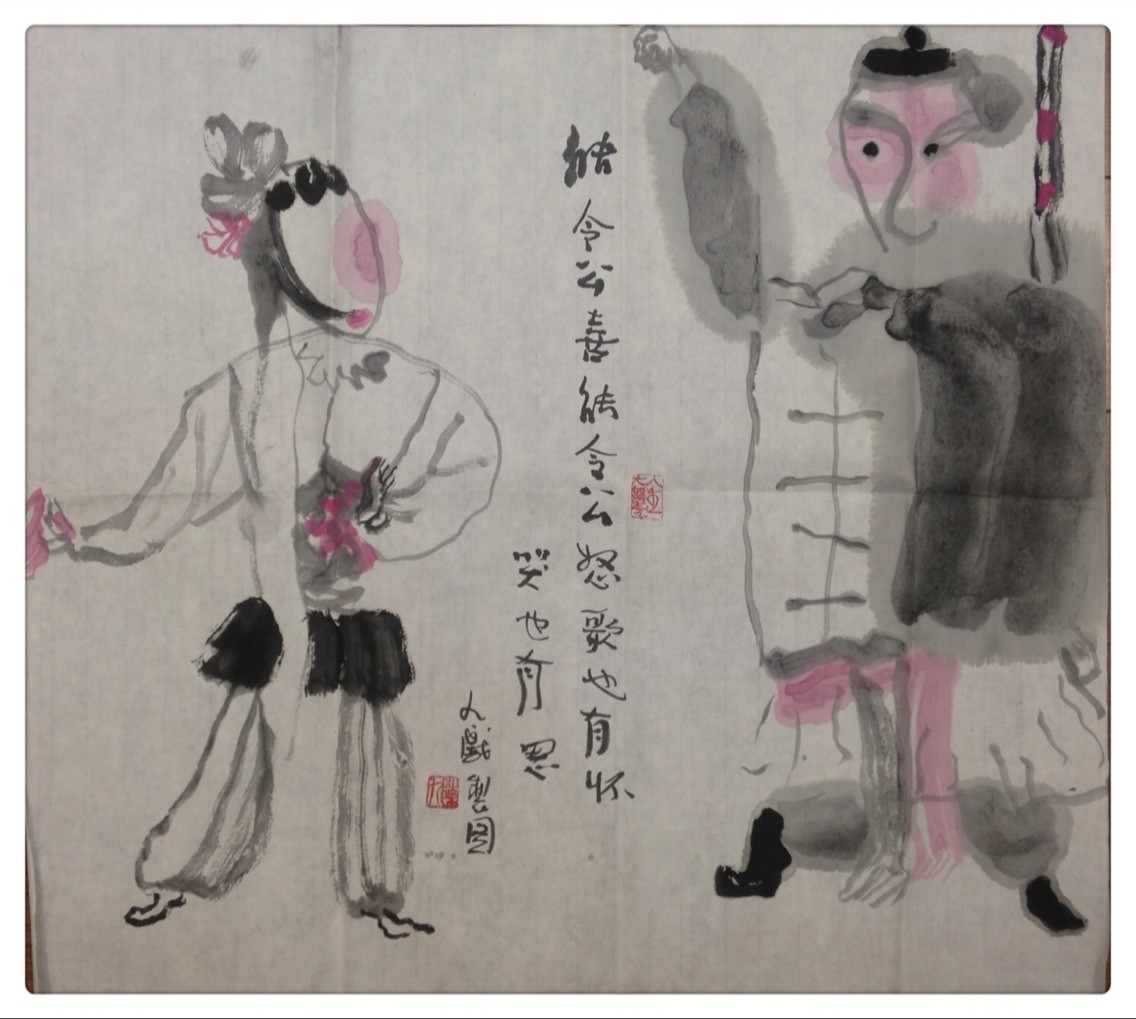 能令公喜能令公怒歌也有怀
哭也有思
戲製图